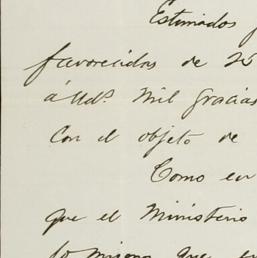 Estimados
favorecidas de 25
á Uds. mil gracias
con el objeto de
Como en
que el Ministerio
lo mismo que en